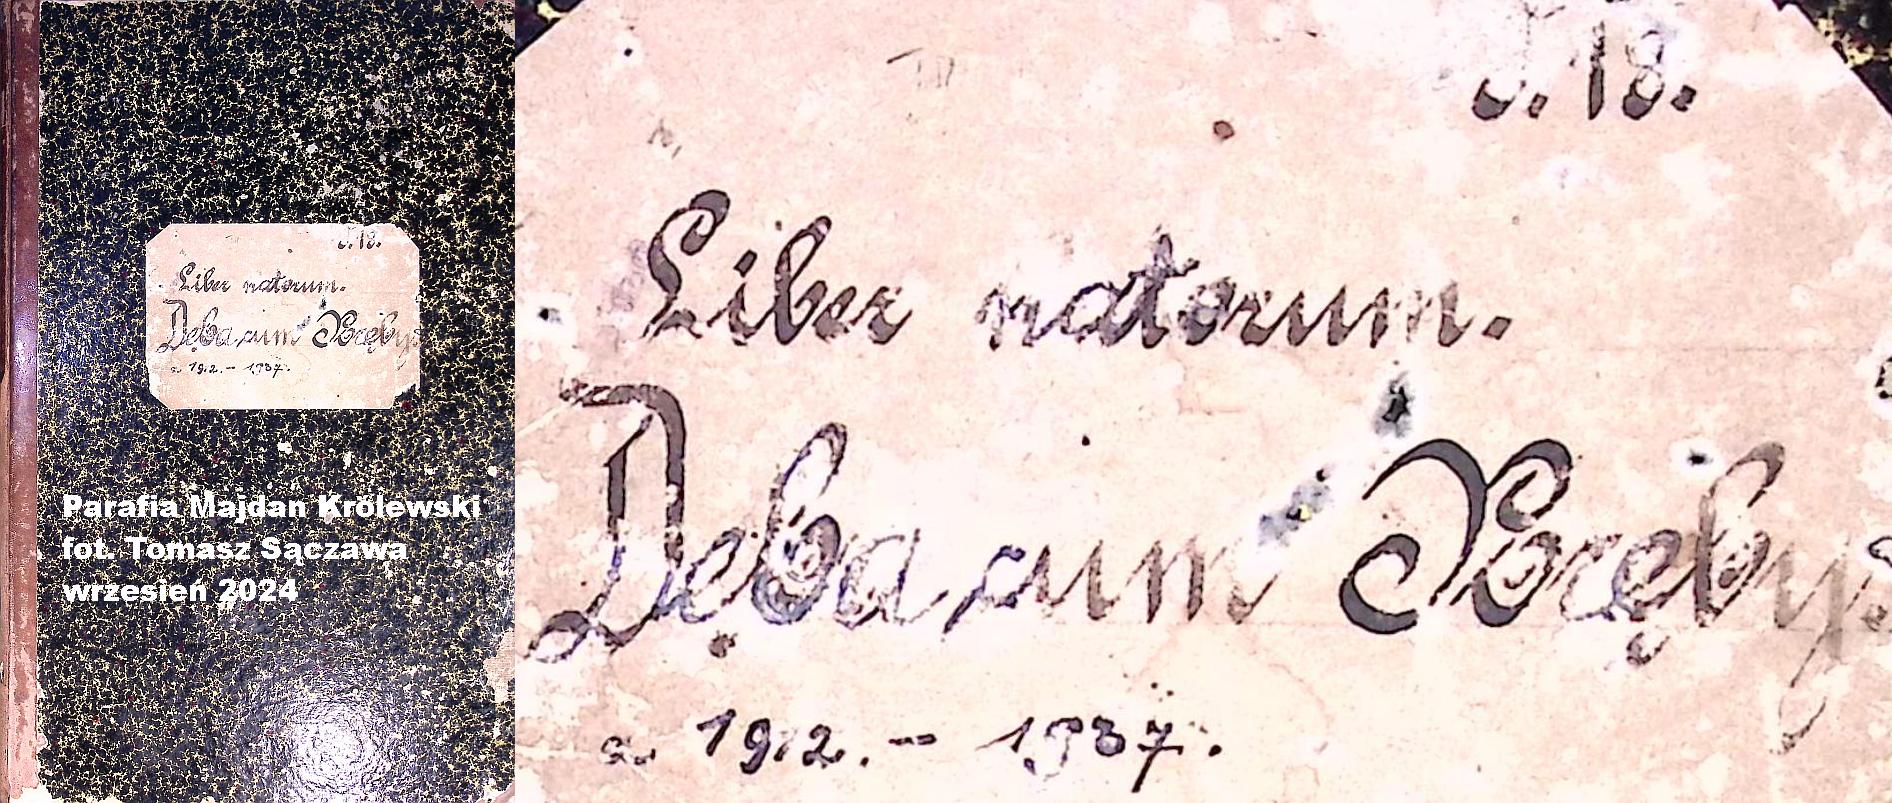 Liber natorum.
Dęba cum Poręby
a 1912. - 1937.
Parafia Majdan Królewski
fot. Tomasz Sączawa
wrzesień 2024
18.
Liber natorum.
Dęba cum Poręby
a 1912. - 1937.